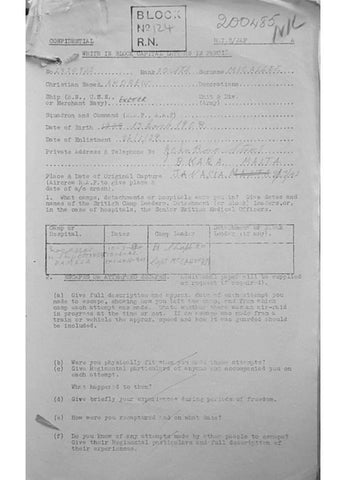 BLOCK
No 124
R.N.
200485
CONFIDENTIAL
M.I.9/JAP A
WRITE IN BLOCK CAPITAL LETTERS IN PENCIL
No. Rank Surname
Christian Names ANDREW Decorations
Ship (R.N., U.S.N., or Merchant Navy). EXETER Unit & Div. (Army)
Squadron and Command (R.A.F., A.A.F)
Date of Birth 1908
Date of Enlistment
Private Address & Telephone No
B'KARA MALTA
Place & Date of Original Capture JAVASEA
(Aircrew R.A.F. to give place & date of a/c crash).
1. What camps, detachments or hospitals were you in? Give dates and names of the British Camp Leaders, Detachment (or Block) Leaders, or, in the case of hospitals, the Senior British Medical Officers.
Camp or Hospital. Dates Camp Leader Detachment or Block Leader (if any).
2. ESCAPES OR ATTEMPTED ESCAPES. (Additional paper will be supplied on request if required).
(a) Give full description and approx. date of each attempt you made to escape, showing how you left the camp, and from which camp each attempt was made. State whether there was an air-raid in progress at the time or not. If an escape was made from a train or vehicle the approx. speed and how it was guarded should be included.
(b) Were you physically fit when you made these attempts?
(c) Give Regimental particulars of anyone who accompanied you on each attempt.
What happened to them?
(d) Give briefly your experiences during periods of freedom.
(e) How were you recaptured and on what date?
(f) Do you know of any attempts made by other people to escape? Give their Regimental particulars and full description of their experiences.